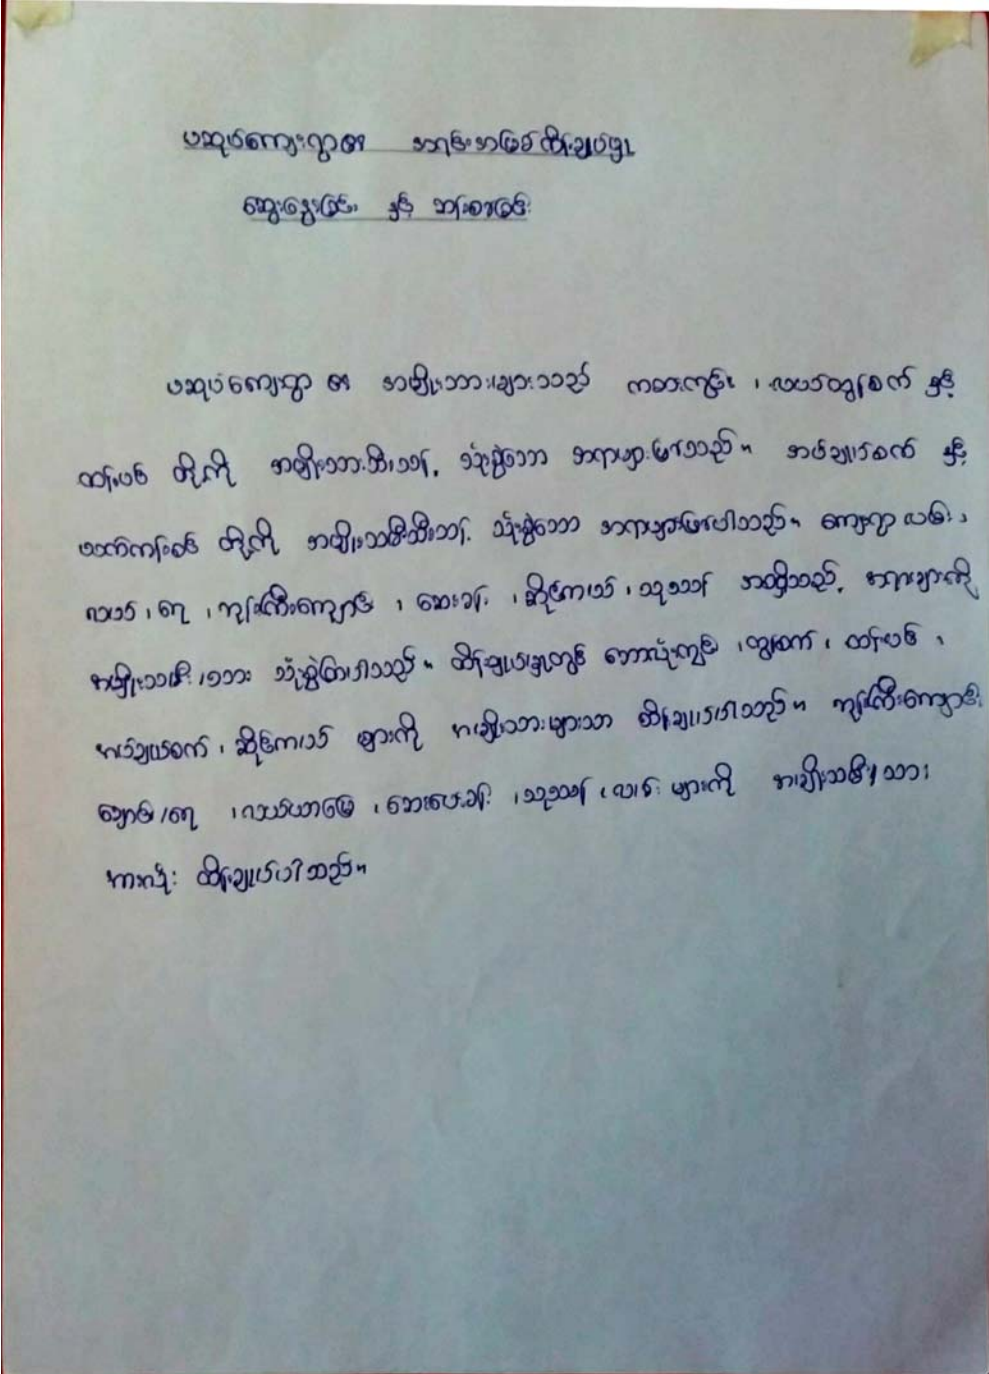 ပဆုပ်ကျေးရွာ၏ အရင်းအမြစ်ထိန်းချုပ်မှု
ဆွေးနွေးခြင်း နှင့် ဆန်းစစ်ခြင်း
ပဆုပ်ကျေးရွာ ၏ အမျိုးသားများသည် ကစားကွင်း ၊ လယ်ထွန်စက် နှင့်
ထန်းပင် တို့ကို အမျိုးသားသီးသန့် သုံးစွဲသော အရာများဖြစ်သည်။ အပ်ချုပ်စက် နှင့်
ယက်ကန်းစင် တို့ကို အမျိုးသမီးသီးသန့် သုံးစွဲသော အရာများဖြစ်ပါသည်။ ကျေးရွာ လမ်း ၊
လယ် ၊ ရေ ၊ ဘုန်းကြီးကျောင်း ၊ ဆေးခန်း ၊ ဆိုင်ကယ် ၊ သုသာန် အစရှိသည့် အရာများကို
အမျိုးသမီး ၊ သား သုံးစွဲကြပါသည်။ ထိန်းချုပ်မှုတွင် ဘောလုံးကွင်း ၊ ထွန်စက် ၊ ထန်းပင် ၊
အပ်ချုပ်စက် ၊ ဆိုင်ကယ် များကို အမျိုးသားများသာ ထိန်းချုပ်ပါသည်။ ဘုန်းကြီးကျောင်း
ချောင်း ၊ ရေ ၊ လယ်ယာမြေ ၊ ဆေးပေးခန်း ၊ သုသာန် ၊ လမ်း များကို အမျိုးသမီး ၊ သား
အားလုံး ထိန်းချုပ်ပါသည်။